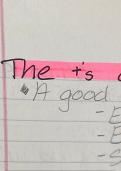 The +'s
• A good
- E
- E
- S